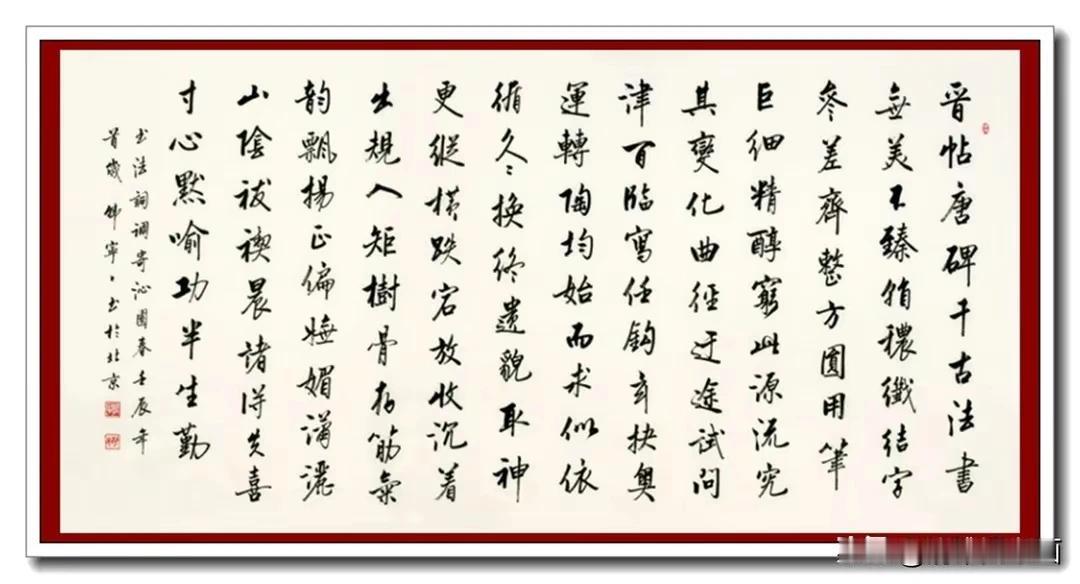 晉帖唐碑千古法書
無美不臻稍穠纖結字
參差齊整方圓用筆
巨細精醇窮此源流究
其變化曲徑迂途試問
津百臨寫任鈎玄抉奧
運轉陶均始而求似依
循久久換終遺貌取神
更縱橫跌宕放收沉着
出規入矩樹骨存筋氣
韵飄揚正偏嫵媚瀟灑
山陰祓禊晨諸得失喜
寸心默喻功半生勤
書法詞調寄沁園春壬辰年
首歲 寧寧書於北京